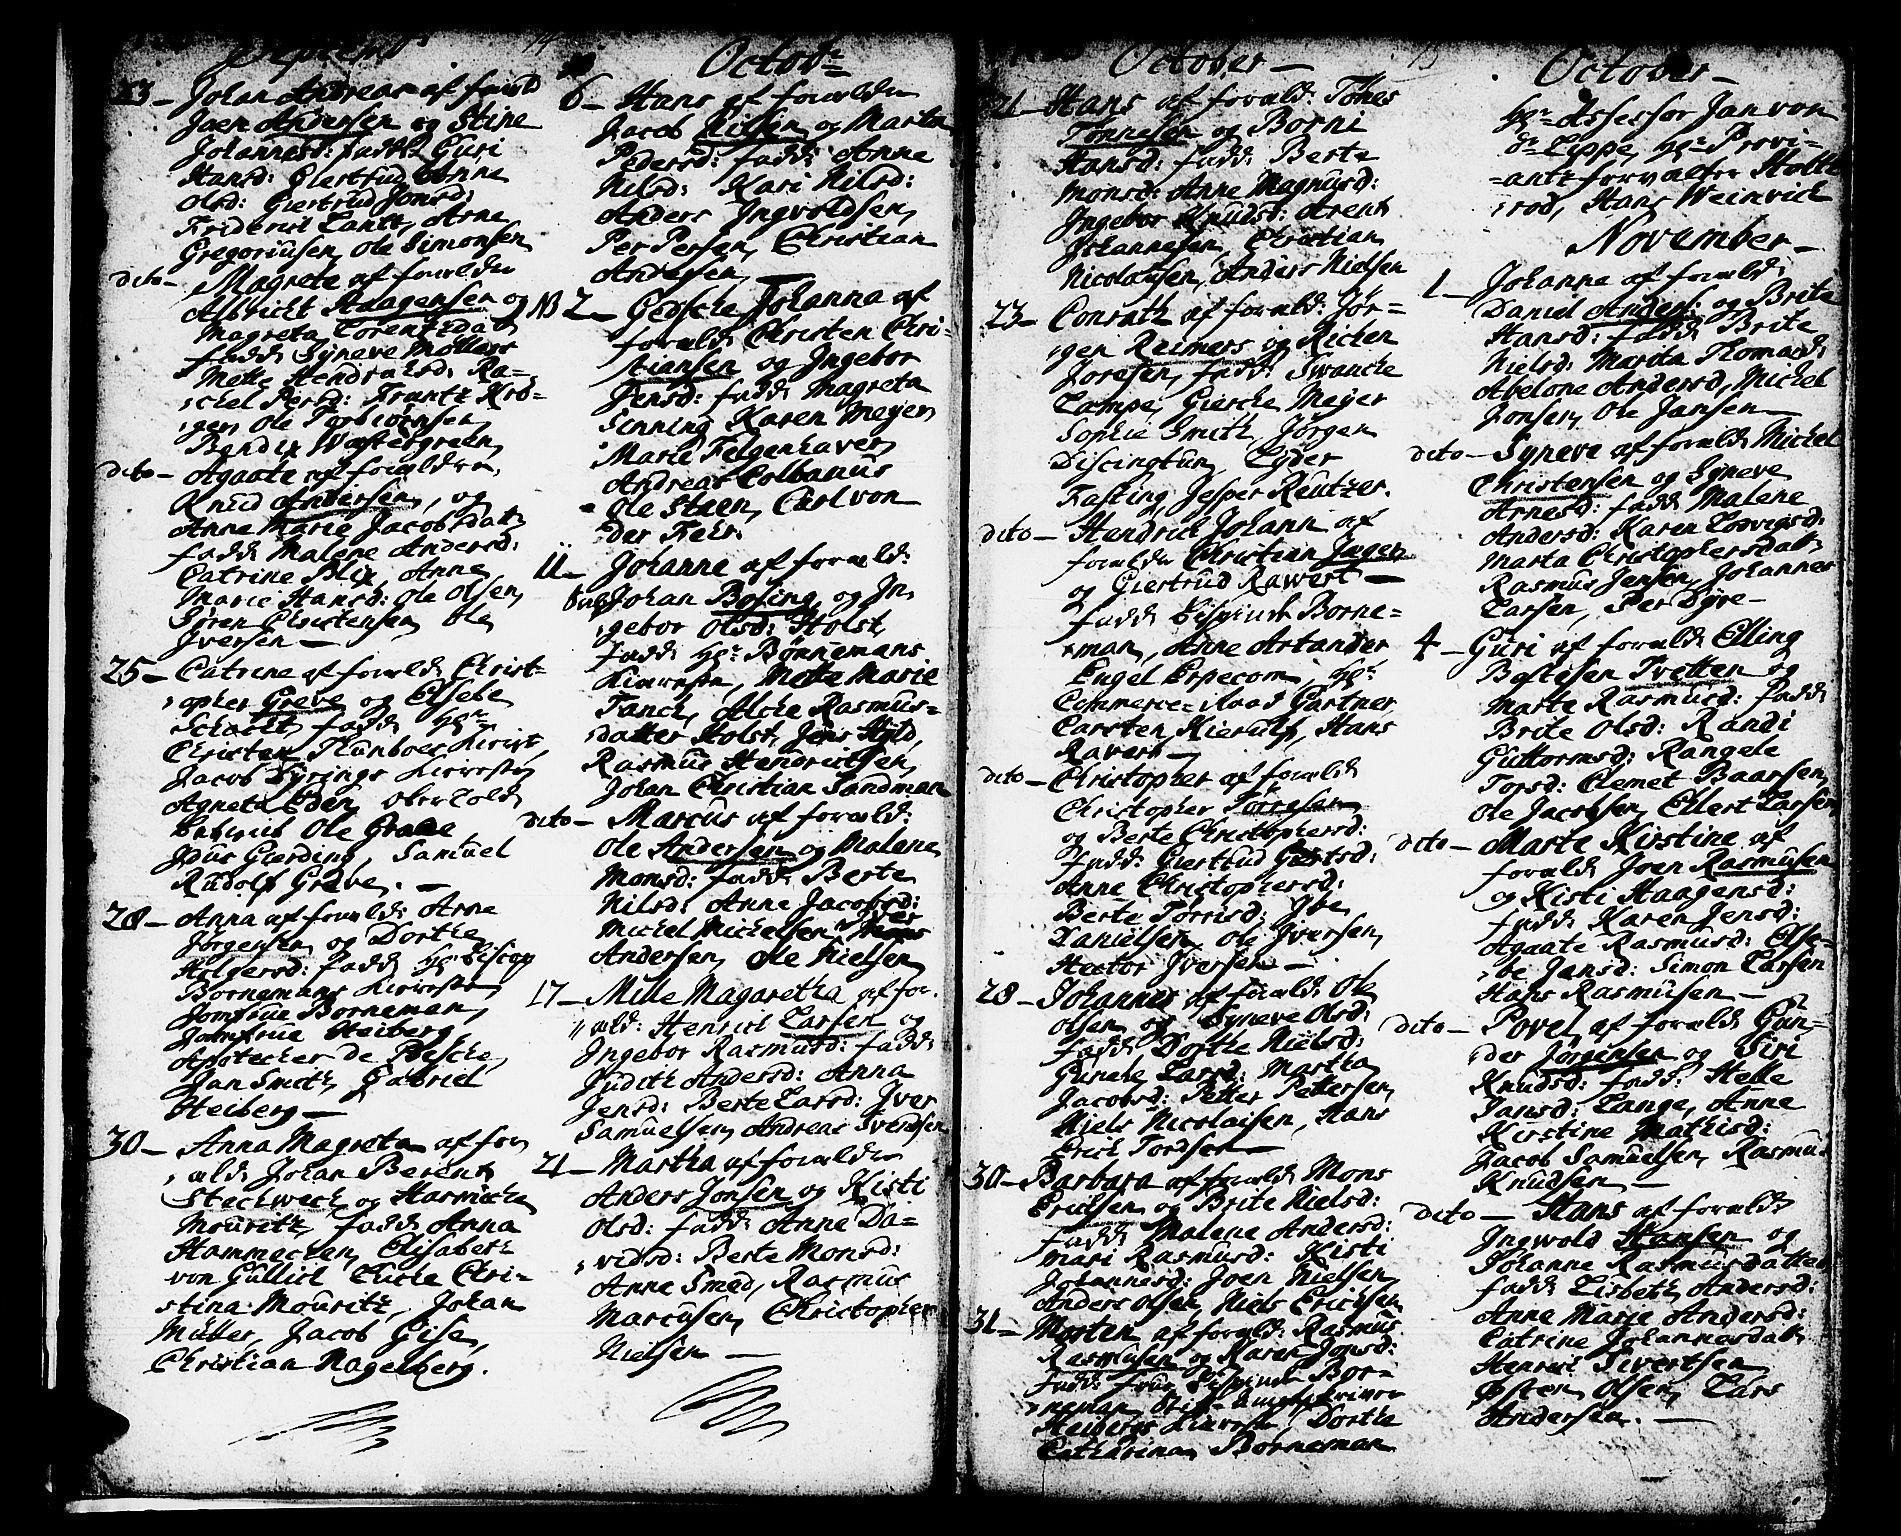 Septemb:
23 - Johan Andreas af foræld
Joen Andersen og Stine
Johannesd: fadd: Guri
Hansd: Giertrud Lonne
Olsd: Giertrud Jonsd:
Friderich Lantz, Arne
Gregoriusen, Ole Simonsen
dito - Magrete af forældre
Albricht Haagensen og
Magreta Lorentzdat:
fadd: Syneve Möllers
Mette Hendrichsd: Ra-
chel Persd: Frantz Krö-
ger, Ole Torbiörnsen
Bendix Wæstergreen
dito - Agaate af forældre
Knud Andersen, og
Anne Marie Jacobsdatt:
fadd: Malene Andersd:
Catrine Blix, Anne
Marie Hansd: Ole Olsen,
Sören Christensen, Ole
Iversen -
25 - Catrine af foræld: Christ-
opher Greve og Elsebe
Schacht, fadd: Hr:
Christen
Jacob Dyrings
Agneta Eden,
Ole Graae
Idus Gierding, Samuel
Rudolf Greve. -
28 - Anna af foræld: Arne
Jörgensen og Dorthe
Holgersd: fadd: Hr: Biscop
Bornemans Kiæreste,
Jomfrue Borneman,
Jomfrue Heiberg,
Apotecher de Besche,
Jan Smith, Gabriel
Heiberg -
30 - Anna Magreta af for
æld: Johan Berent
Steckweck og Harmicha
Mouritz, fadd: Anna
Hammecken, Elisabeth
von Güllich, Lucke Chri-
stina Mouritz, Johan
Müller, Jacob Gise,
Christian Nagelberg.
14
Octob:
6 - Hans af forældre
Jacob og Marta
Pedersd: fadd: Anne
Nilsd: Kari Nilsd:
Anders Ingvoldsen,
Per Persen, Christian
Andersen,
NB 2 - Gesche Johanna af
foræld: Christen Chri-
stiansen og Ingebor
Jensd: fadd: Magreta
Sinning, Karen Meyer,
Marie Felgenhaver,
Andreas Colbanus
Ole Staen, Carl von
der Fehr.
11 - Johanne af foræld:
Johan Bösing, og In-
gebor Olsd: Holst,
fadd: Hr: Bornemans
Kiæreste, Mette Marie
Tanch, Alche Rasmus-
datter Holst, Jens Hyld,
Rasmus Hendrichsen,
Johan Christian Sandman
dito - Marcus af foræld:
Ole Andersen og Malene
Monsd: fadd: Berte
Nilsd: Anne Jacobsd:
Michel Michelsen, Iver
Andersen, Ole Nielsen
17 - Mille Magaretha af for-
æld: Henrich Larsen og
Ingebor Rasmusd: fadd:
Judith Andersd: Anna
Jensd: Berte Larsd: Iver
Samuelsen, Andreas Svendsen
21 - Martha af forældre
Anders Jonsen og Kisti
Olsd: fadd: Anne Da-
vidsd: Berte Monsd:
Anne Smed, Rasmus
Marcusen, Christopher
Nielsen -
October -
21 - Hans af foræld: Tönes
Tönnesen og Borni
Hansd: fadd: Berte
Monsd: Anne Magnusd:
Ingebor Knudsd: Arent
Johannesen, Christian
Nicolausen, Anders Nielsen
23 - Conrath af foræld: Jör-
gen Reimers og Ricken
Joresen, fadd: Swancke
Lampe, Giercke Meyer
Sophie Smith, Jörgen
Discington, Eyder
Fasting, Jesper Reutzer.
dito - Hendrich Johann af
forældre Christian Jager
og Giertrud Rawert -
fadd: Bispinde Borne-
man, Anne Artander
Engel Erpecom, Hr:
Commerce-Raad Gartner
Carsten Hierulf, Hans
Ravert -
dito - Christopher af foræld:
Christopher Törresen
og Berte Christophersd:
fadd: Giertrud Giertsd:
Anne Christophersd:
Berte Törrisd: Joe
Danielsen, Ole Iversen,
Hector Iversen -
28 - Johannes af foræld: Ole
Olsen og Syneve Olsd:
fadd: Dorthe Nielsd:
Gunele Larsd: Martha
Jacobsd: Petter Pettersen,
Niels Nicolaisen, Hans
Erich Tordsen -
30 - Barbara af foræld: Mons
Erichsen og Brite Nielsd:
fadd: Malene Andersd:
Mari Rasmusd: Kisti
Johannesd: Joen Nielsen,
Anders Olsen, Niels Erichsen
31 - Morten af foræld: Rasmus
Rasmusen og Karen Jonsd:
fadd: Frue Bispinde Bor-
neman,
Heibergs Kiæreste, Dorthe
Catharina Borneman
15
October -
Hr: Assessor Jan von
der Lippe, Hr: Provi-
antz forvalter Holte-
rod, Hans Weinrich
November -
1 - Johanne af foræld:
Daniel Anders: og Brite
Hansd: fadd: Brite
Nielsd: Marta Thomasd:
Abelone Andersd, Michel
Jonsen, Ole Jansen -
dito - Syneve af foræld: Michel
Christensen og Syneve
Arnesd: fadd: Malene
Andersd: Karen Lovigsd:
Marta Christophersdatt:
Rasmus Jensen, Johannes
Larsen, Per Dyre -
4 - Guri af foræld: Elling
Bottesen Tvetten og
Marte Rasmusd: fadd:
Brite Olsd: Randi
Guttormsd: Rangele
Torsd: Clemet Baarsen,
Ole Jacobsen, Ellert Larsen
dito - Marte Kirstine af
foræld: Joen Rasmusen
og Kisti Haagensd:
fadd: Karen Jensd:
Agaate Rasmusd: Else-
be Jansd: Simon Larsen
Hans Rasmusen -
dito - Povel af foræld: Gun-
der Jörgensen og Siri
Knudsd: fadd: Helle
Jansd: Lange, Anne
Kirstine Mathisd:
Jacob Samuelsen, Rasmus
Knudsen -
dito - Hans af foræld:
Ingwold Hansen og
Johanne Rasmusdatter
fadd: Lisbeth Andersd:
Anne Marie Andersd:
Catrine Johannesdatt:
Henrich Sivertsen
Østen Olsen, Lars
Andersen. -